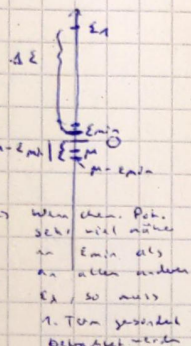 ε₁
Δε
εmin
O
μ
μ-εmin
→ Wenn chem. Pot.
sehr viel näher
an εmin als
an allen anderen
ελ, so muss
1. Term gesondert
betrachtet werden